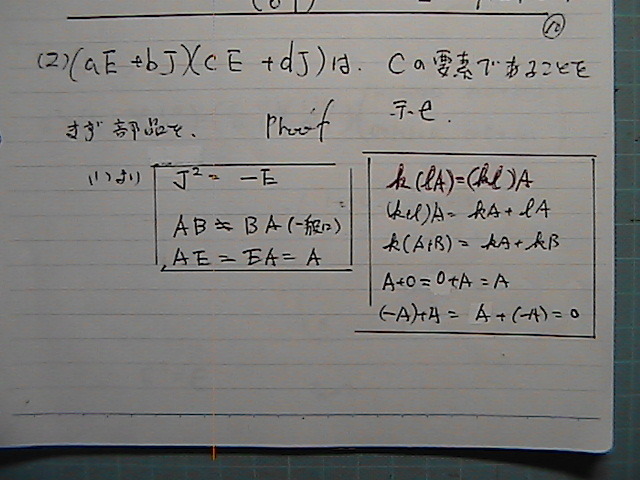 ⑫
(2) (aE+bJ)(cE+dJ)は、Cの要素であることを
示せ.
まず部品を、 Proof
(1)より
J² = -E
AB ≠ BA (一般に)
AE = EA = A
k(lA)=(kl)A
(k+l)A = kA + lA
k(A+B) = kA + kB
A+0=0+A=A
(-A)+A = A+(-A)=0